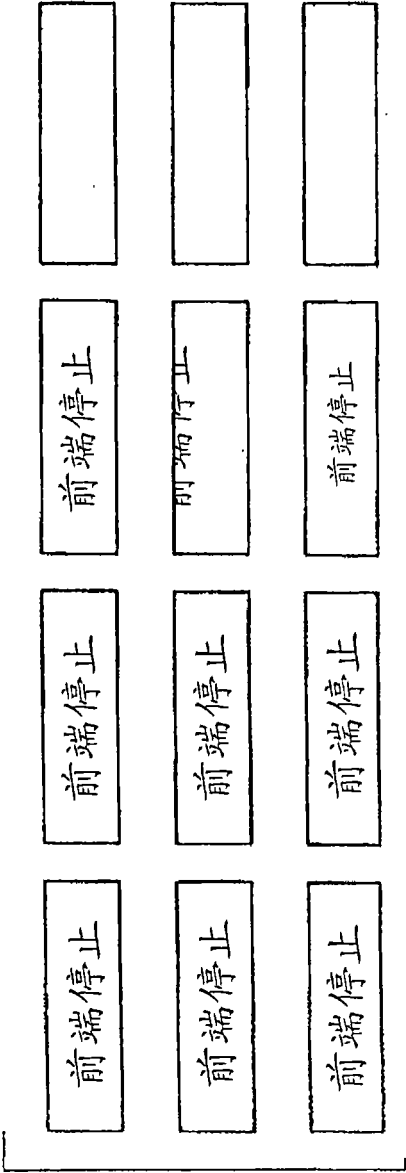 前端停止
前端停止
前端停止
前端停止
前端停止
前端停止
前端停止
前端停止
前端停止